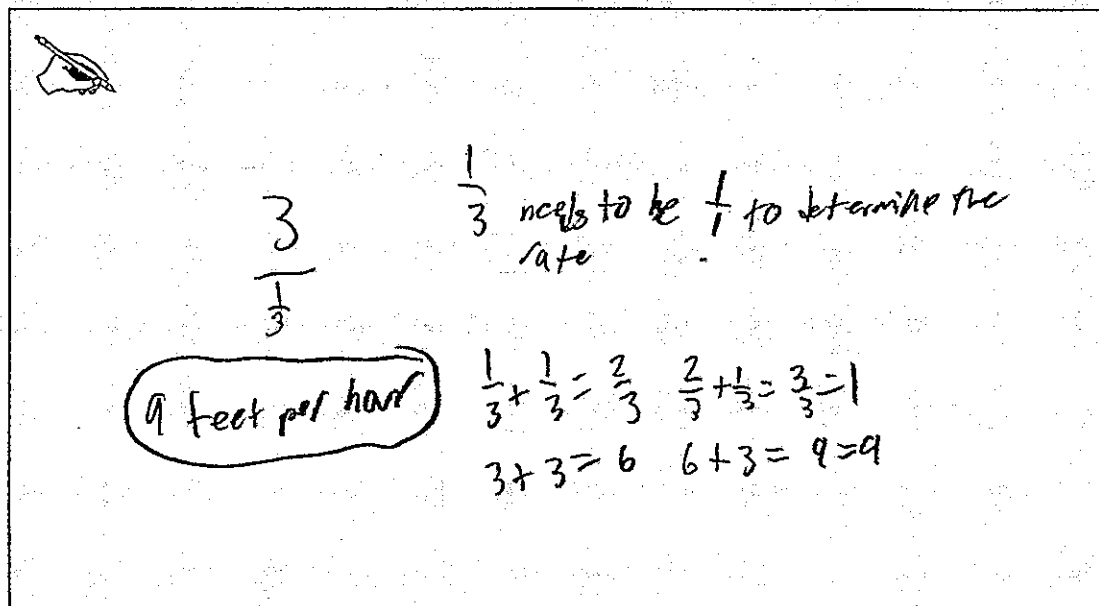 3
1/3
1/3 needs to be 1/1 to determine the
rate
9 feet per hour
1/3 + 1/3 = 2/3 2/3 + 1/3 = 3/3 = 1
3 + 3 = 6 6 + 3 = 9 = 9